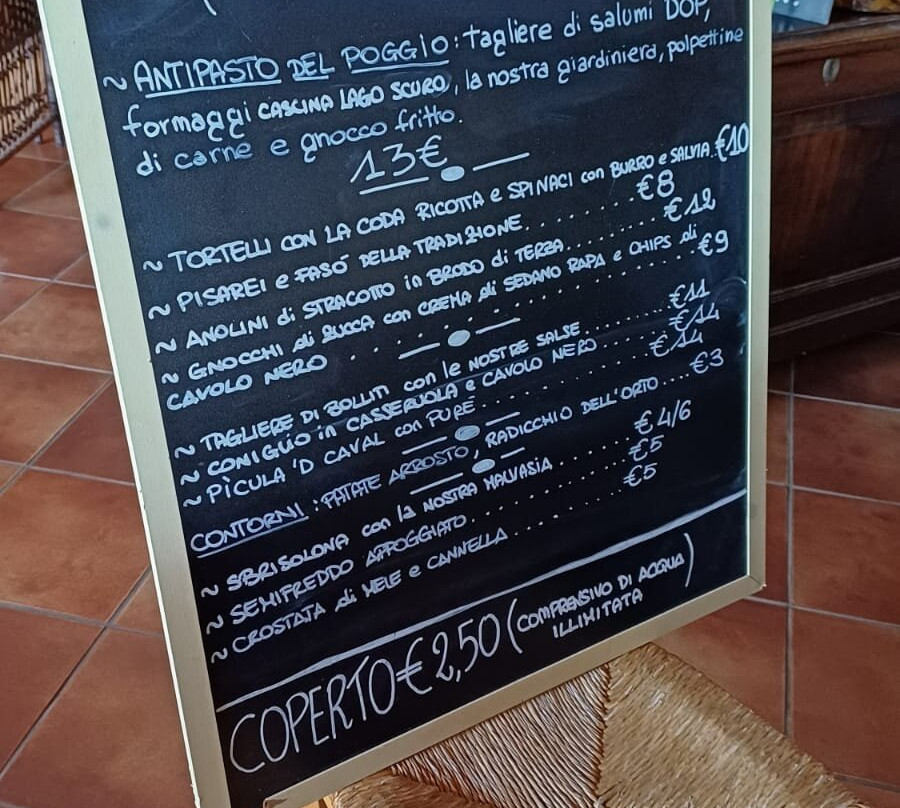 ~ ANTIPASTO DEL POGGIO: tagliere di salumi DOP,
formaggi CASCINA LAGO SCURO, la nostra giardiniera, polpettine
di carne e gnocco fritto.
13€
~ TORTELLI CON LA CODA RICOTTA e SPINACI con BURRO e SALVIA. €10
~ PISAREI e FASÓ DELLA TRADIZIONE........ €8
~ ANOLINI di STRACOTTO in BRODO di TERZA....... €12
~ GNOCCHI di ZUCCA con CREMA di SEDANO RAPA e CHIPS di
CAVOLO NERO ............ €9
~ TAGLIERE DI BOLLITI con le NOSTRE SALSE ....... €11
~ CONIGLIO in CASSERUOLA e CAVOLO NERO ..... €14
~ PÌCULA 'D CAVAL con PURÈ ............ €14
CONTORNI: PATATE ARROSTO, RADICCHIO DELL'ORTO.... €3
~ SBRISOLONA con la NOSTRA MALVASIA....... € 4/6
~ SEMIFREDDO APPOGGIATO........... €5
~ CROSTATA di MELE e CANNELLA ......... €5
COPERTO € 2,50 (COMPRENSIVO DI ACQUA
ILLIMITATA)